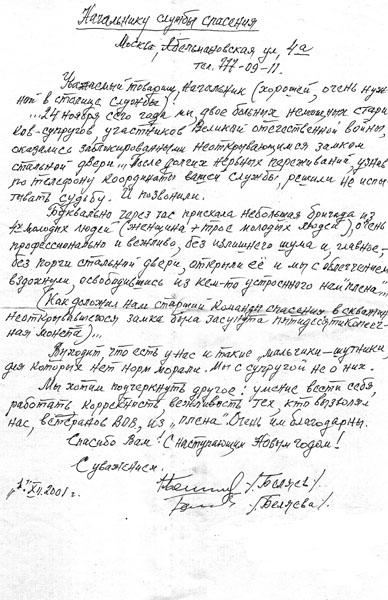 Начальнику службы спасения
Москва, Абельмановская ул, 4а
тел. 777-09-11.
Уважаемый товарищ Начальник (хорошей, очень нуж-
ной в столице службы)!
...24 ноября сего года мы, двое больных немощных стари
ков-супругов, участников Великой отечественной войны,
оказались заблокированными неоткрывающимся замком
стальной двери... После долгих нервных переживаний, узнав
по телефону координаты вашей службы, решили не испы
тывать судьбу. И позвонили.
Буквально через час приехала небольшая бригада из
4х молодых людей (женщина + трое молодых людей), очень
профессионально и вежливо, без излишнего шума и, главное,-
без порчи стальной двери, открыли её и мы с облегчением
вздохнули, освободившись из кем-то устроенного нам "плена"
(Как доложил нам старший команды спасения в скважин
неоткрывшегося замка была засунута пятидесятикопееч-
ная монета)...
Выходит что есть у нас и такие "мальчики-шутники,
для которых нет норм морали. Мы с супругой не о них.
Мы хотим подчеркнуть другое: умение вести себя,
работать корректность, вежливость тех, кто вызволял
нас, ветеранов ВОВ, из "плена". Очень им благодарны.
Спасибо Вам! С наступающим Новым годом!
С уважением.
/Беляев/
XII.2001г. /Беляева/